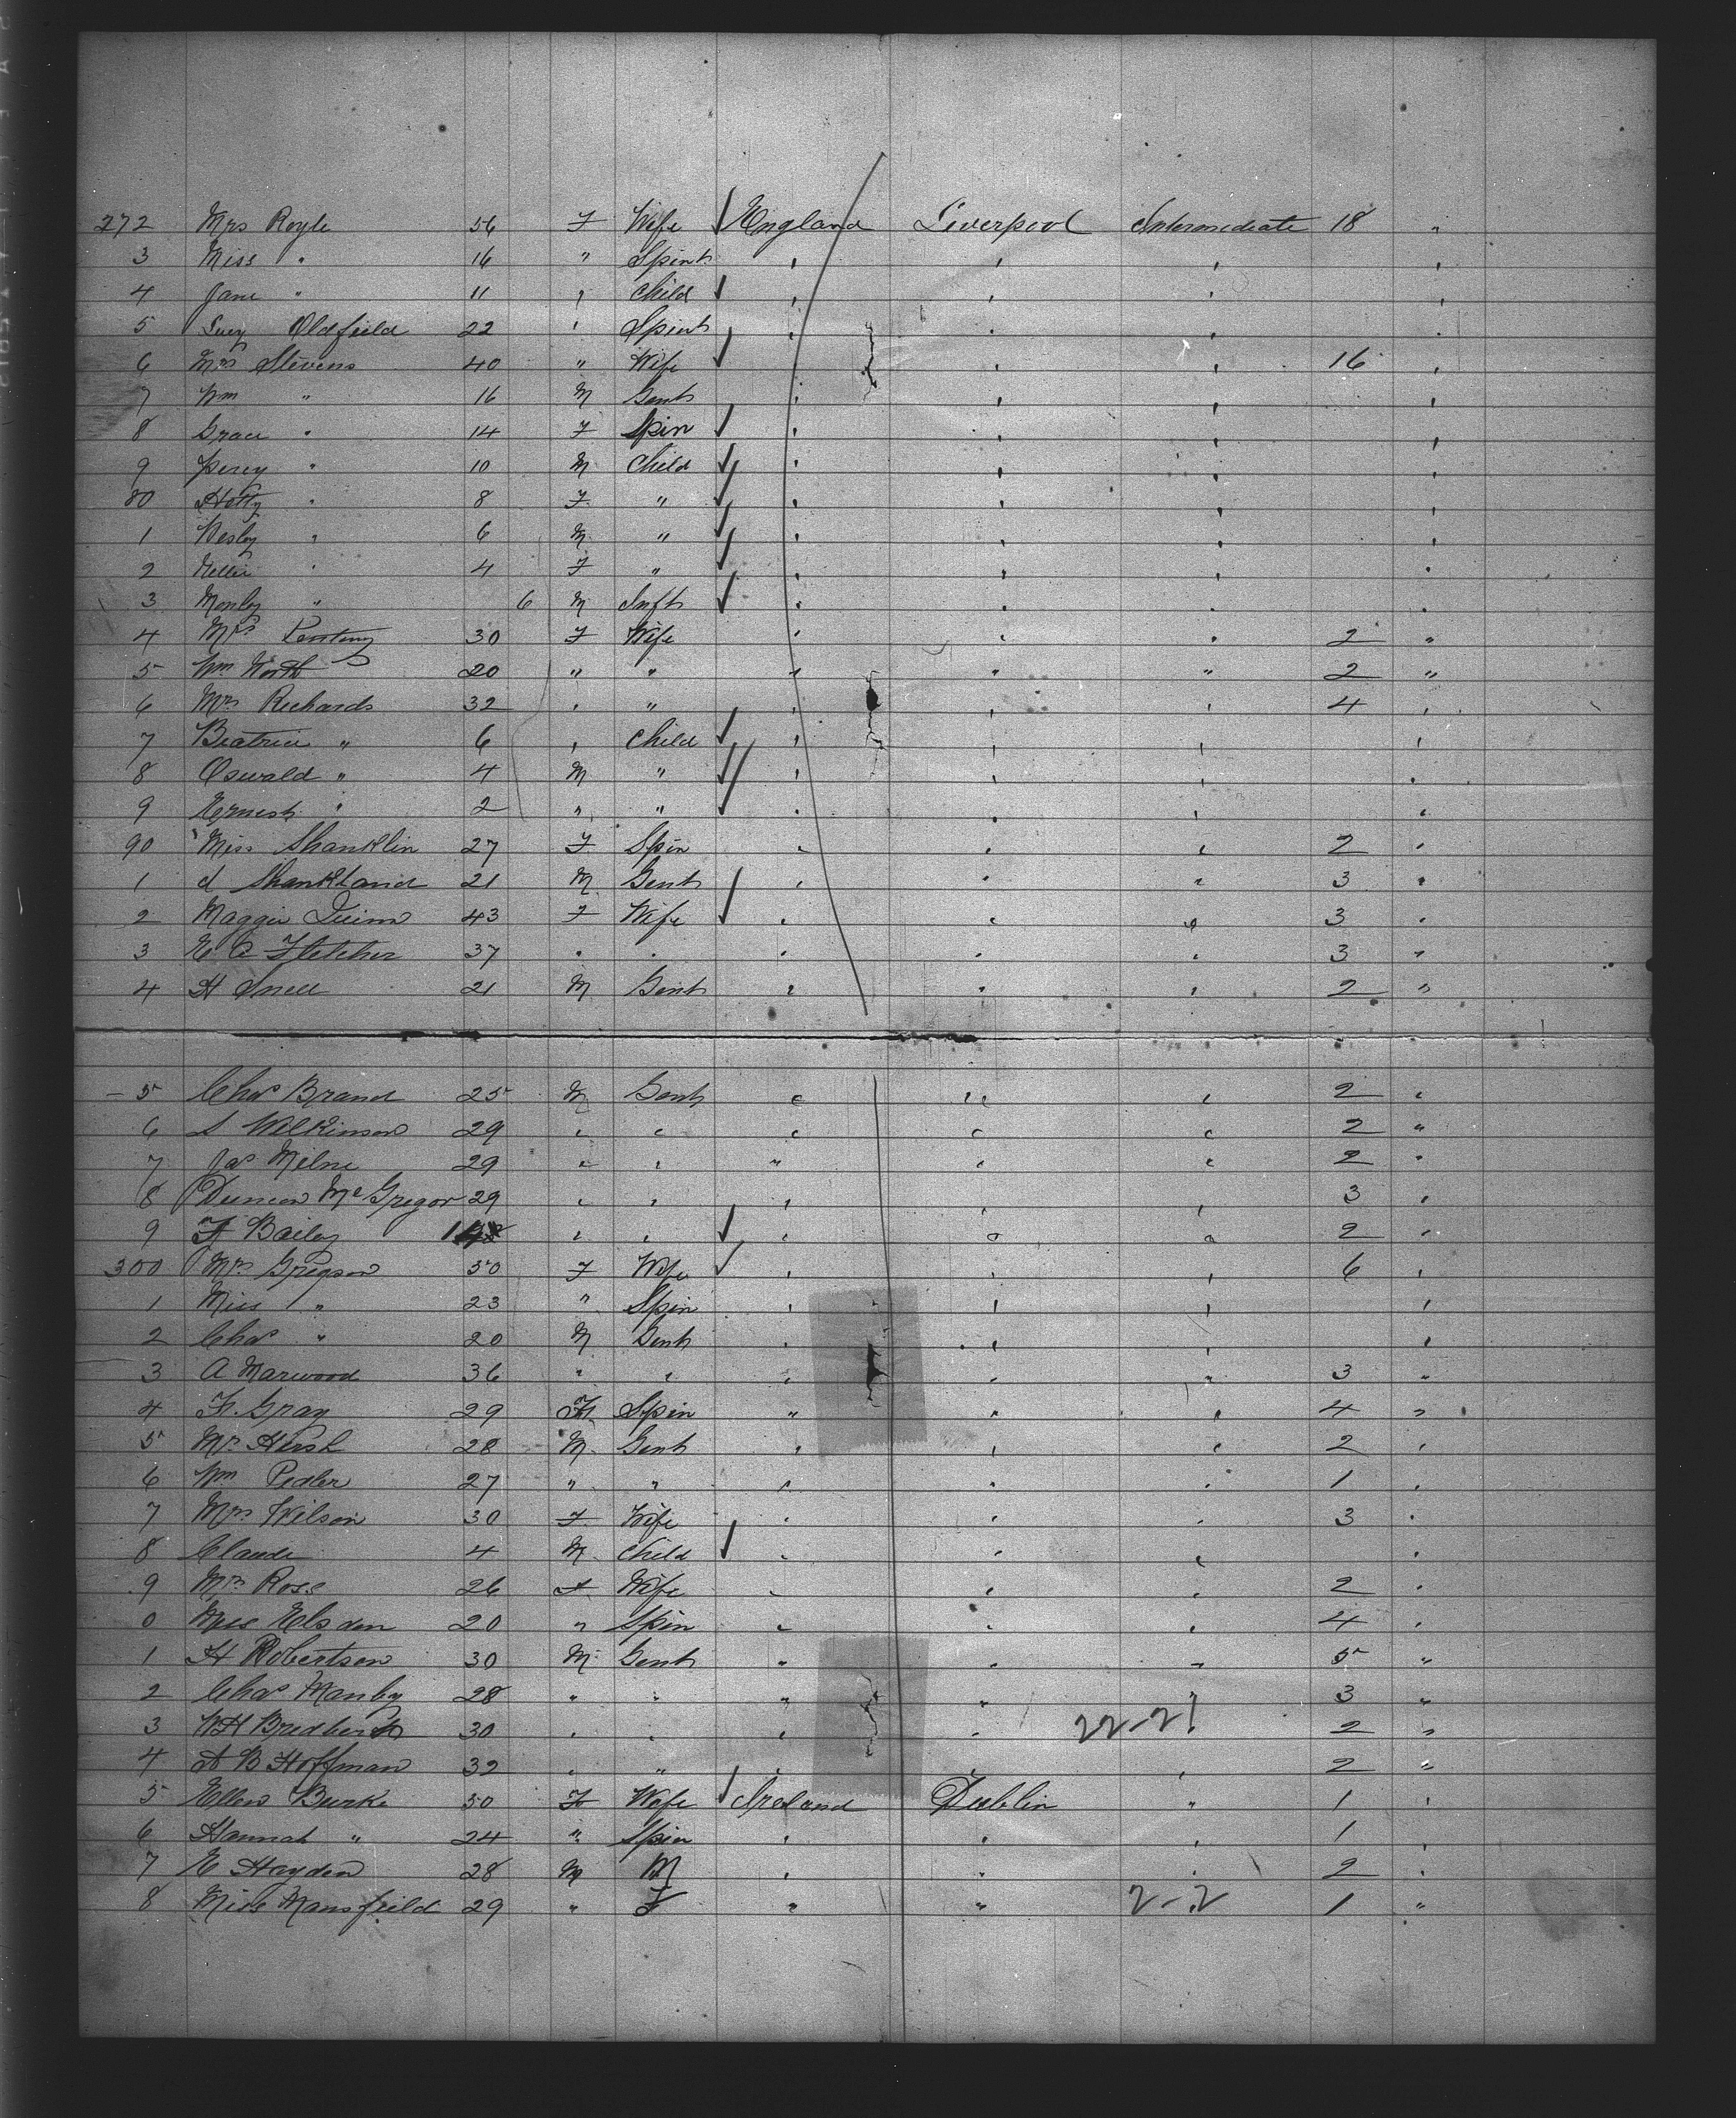 272 Mrs Royle 56 F Wife England Liverpool Intermediate 18 "
3 Miss " 16 " Spins " " " "
4 Jane " 11 " Child " " " "
5 Lucy Oldfield 22 " Spins " " " "
6 Mrs Stevens 40 " Wife " " " 16 "
7 Wm " 16 M Gent " " " "
8 Grace " 14 F Spin " " " "
9 Percy " 10 M Child " " " "
80 Hetty " 8 F " " " " "
1 Wesley " 6 M " " " " "
2 Nellie " 4 F " " " " "
3 Morley " 6 M Inft " " " "
4 Mrs 30 F Wife " " " 2 "
5 Wm North 20 " " " " " 2 "
6 Mrs Richards 32 " " " " " 4 "
7 Beatrice " 6 " Child " " " "
8 Oswald " 4 M " " " " "
9 Ernest " 2 " " " " " "
90 Miss Shanklin 27 F Spin " " " 2 "
1 d Shankland 21 M Gent " " " 3 "
2 Maggie Quinn 43 F Wife " " " 3 "
3 E C Fletcher 37 " " " " " 3 "
4 H Snell 21 M Gent " " " 2 "
5 Chas Brand 25 M Gent " " " 2 "
6 S Wilkinson 29 " " " " " 2 "
7 Jas Milne 29 " " " " " 2 "
8 Duncan McGregor 29 " " " " " 3 "
9 F Bailey " " " " " 2 "
300 Mrs Gregson 50 F Wife " " " 6 "
1 Miss " 23 " Spin " " " "
2 Chas " 20 M Gent " " " "
3 A Marwood 36 " " " " " 3 "
4 F. Gray 29 F Spin " " " 4 "
5 Mr Hirsh 28 M Gent " " " 2 "
6 Wm Pedler 27 " " " " " 1 "
7 Mrs Wilson 30 F Wife " " " 3 "
8 Claude 4 M Child " " " "
9 Mrs Ross 26 F Wife " " " 2 "
0 Miss Elsden 20 " Spin " " " 4 "
1 H Robertson 30 M Gent " " " 5 "
2 Chas Manby 28 " " " " " 3 "
3 W H 30 " " " " 22-21 " 2 "
4 A B Hoffman 32 " " " " " 2 "
5 Ellen Burke 50 F Wife Ireland Dublin " 1 "
6 Hannah " 24 " Spin " " " 1 "
7 E Hayden 28 M M " " " 2 "
8 Miss Mansfield 29 " F " " 2-2 " 1 "